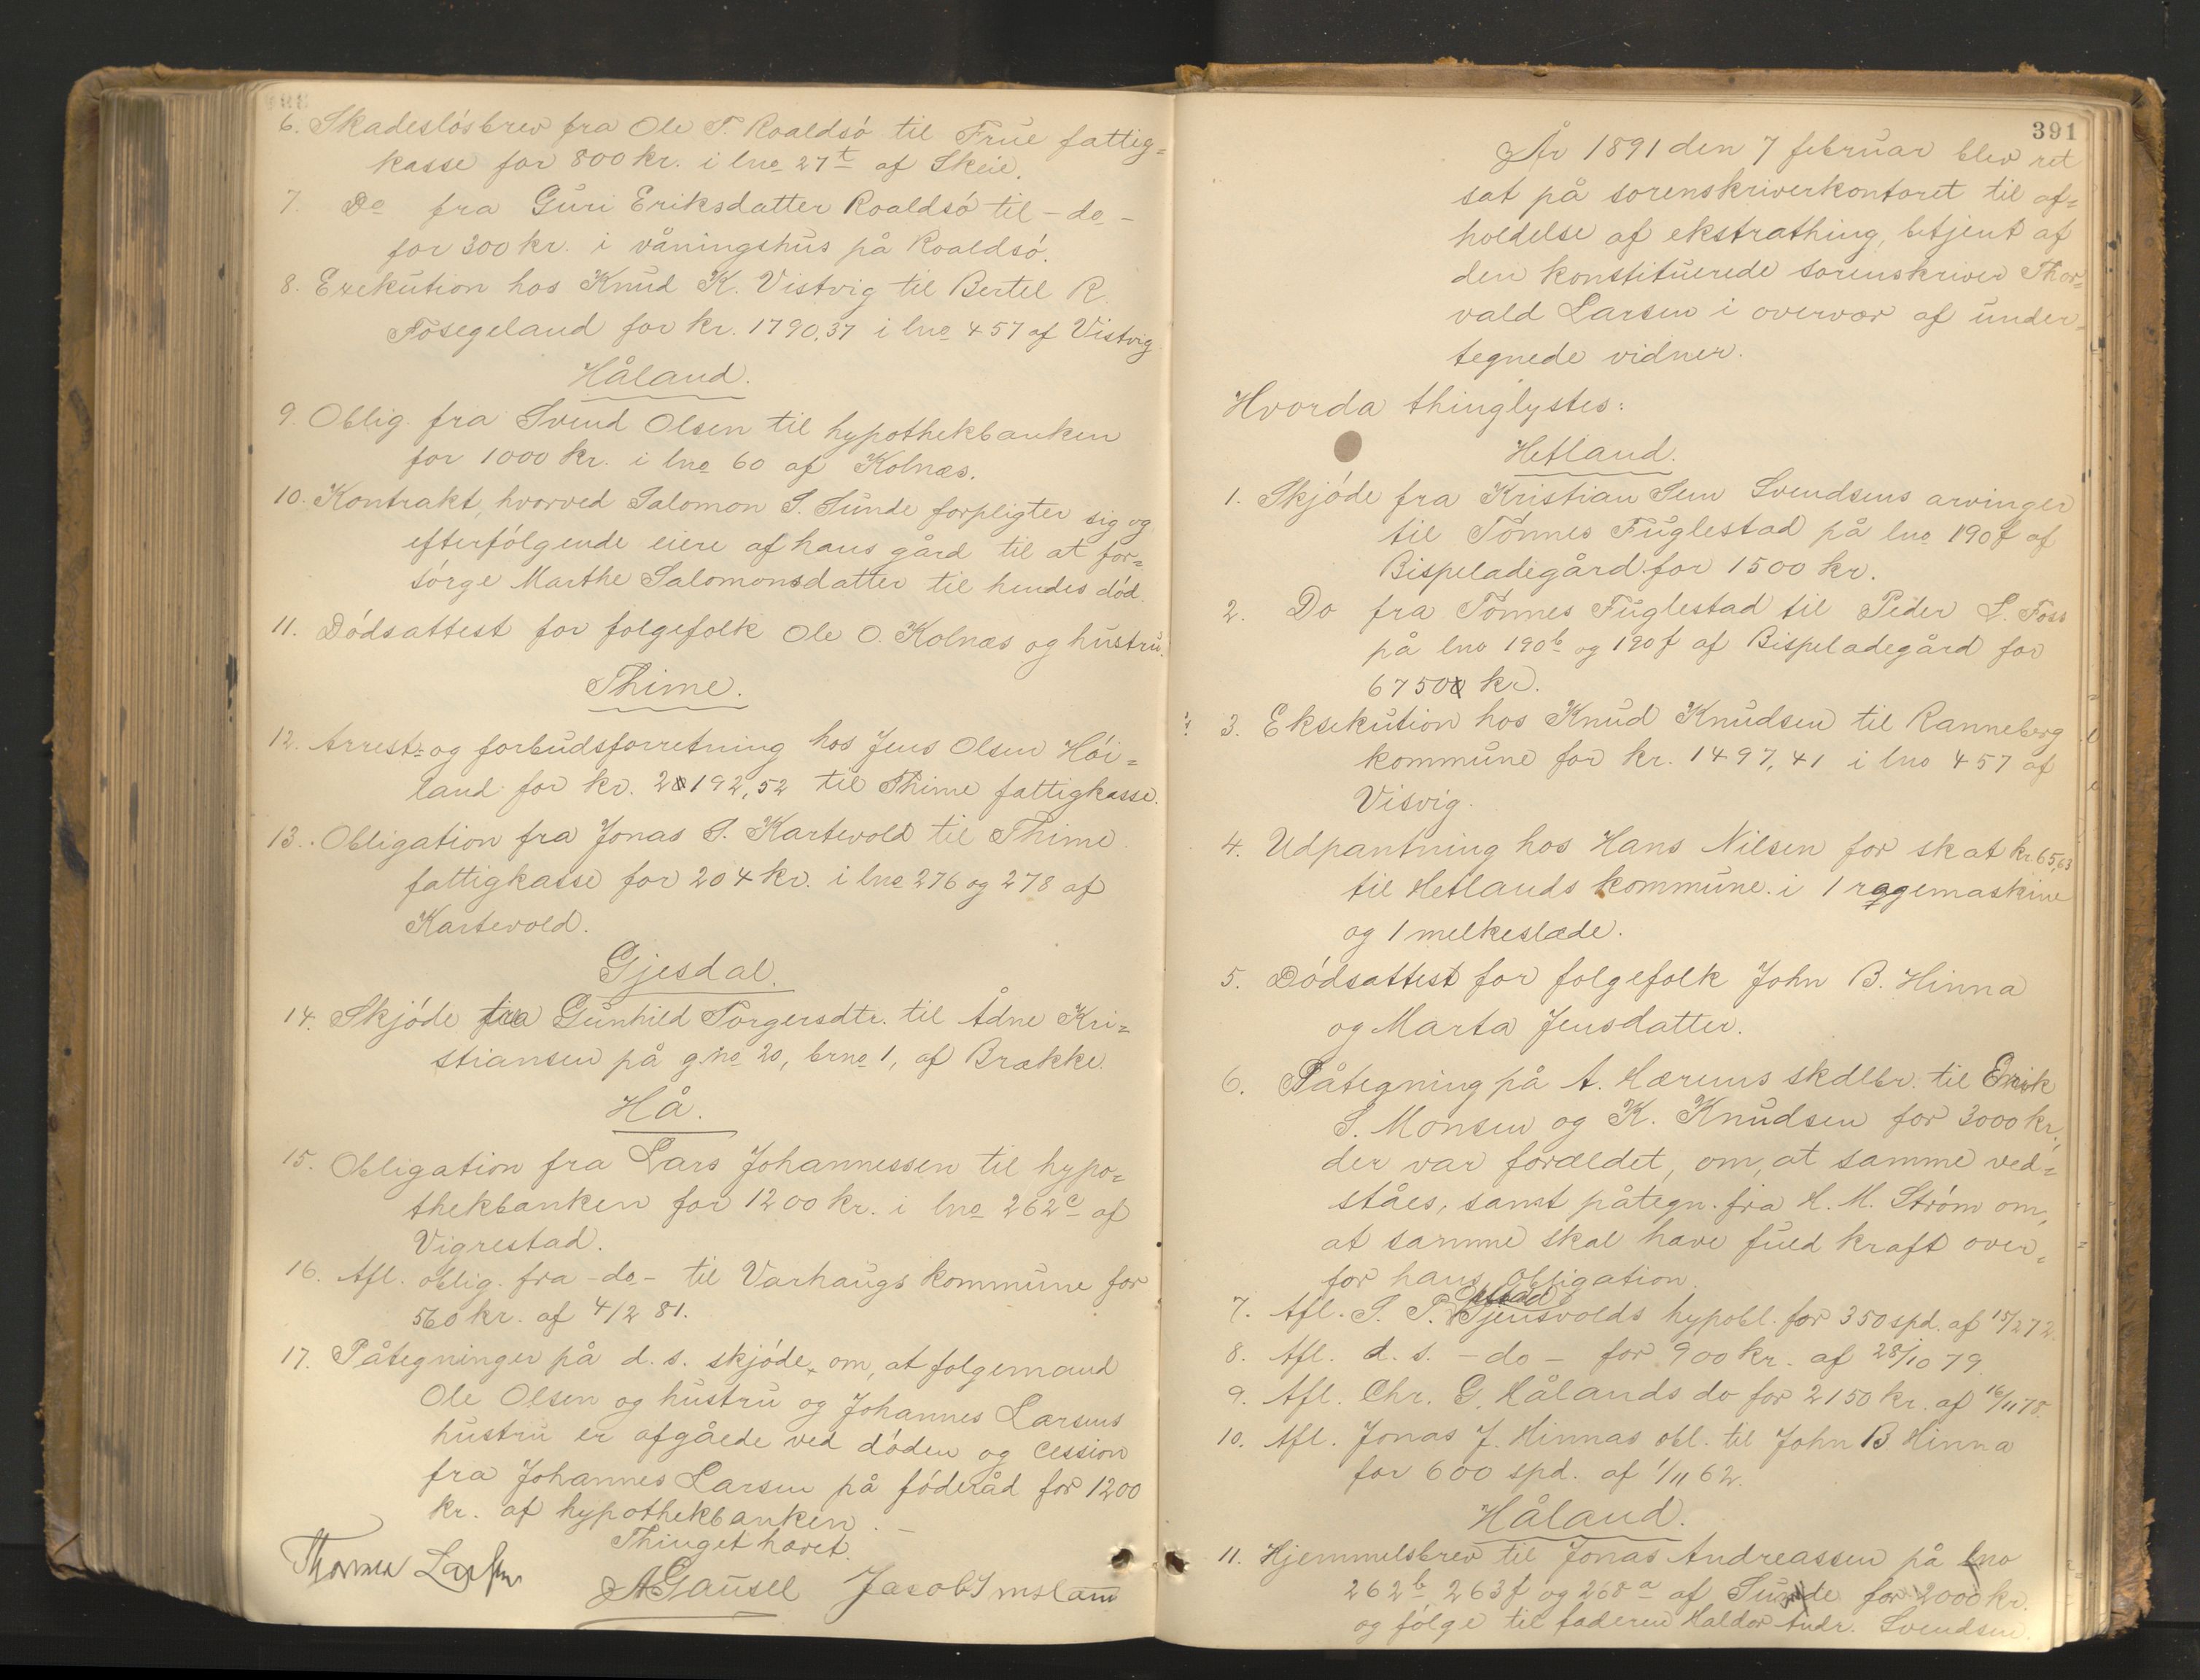 6. Skadesløsbrev fra Ole T. Roaldsø til Frue fattig=
kasse for 800 kr. i lno 27t af Skeie.
7. Do fra Guri Eriksdatter Roaldsø til - do -
for 200 kr. i våningshus på Roaldsø.
8. Exekution hos Knud K. Vistvig til Bertel R.
Fosegeland for kr. 1790,37 i lno 457 af Vistvig
Håland.
9. Oblig. fra Svend Olsen til hypothekbanken
for 1000 kr. i lno 60 af Kolnæs.
10. Kontrakt, hvorved Salomon S. Sunde forpligter sig og
efterfølgende eiere af hans gård til at for=
sørge Marthe Salomonsdatter til hendes død.
11. Dødsattest for folgefolk Ole O. Kolnæs og hustru.
Thime.
12. Arrest- og forbudsforretning hos Jens Olsen Høi=
land for kr. 2192,52 til Thime fattigkasse.
13. Obligation fra Jonas S. Kartevold til Thime
fattigkasse for 204 kr. i lno 276 og 278 af
Kartevold.
Gjesdal.
14. Skjøde fra Gunhild Torgersdtr. til Ådne Kri=
stiansen på gno 20, brno 1, af Brække.
Hå.
15. Obligation fra Lars Johannessen til hypo=
thekbanken for 1200 kr. i lno 262c af
Vigrestad.
16. Afl. oblig. fra - do - til Varhaugs kommune for
560 kr. af 4/2 81.
17. Påtegninger på d. s. skjøde, om, at folgemand
Ole Olsen og hustru og Johannes Larsens
hustru er afgåede ved døden og cession
fra Johannes Larsen på føderåd for 1200
kr. af hypothekbanken. -
Thinget hævet.
Larsen
AGausel Jacob Imsland
391
År 1891 den 7 februar blev ret
sat på sorenskriverkontoret til af=
holdelse af ekstrathing, betjent af
den konstituerede sorenskriver Thor=
vald Larsen i overvær af under=
tegnede vidner.
Hvorda thinglystes:
Hetland.
1. Skjøde fra Kristian Sem Svendsens arvinger
til Tønnes Fuglestad på lno 190f af
Bispeladegård for 1500 kr.
2. Do fra Tønnes Fuglestad til Peder L. Foss
på lno 190b og 190f af Bispeladegård for
6750 kr.
3. Eksekution hos Knud Knudsen til Ranneberg
kommune for kr. 1497,41 i lno 457 af
Visvig.
4. Udpantning hos Hans Nilsen for skat kr. 65,63
til Hetlands kommune i 1 rogemaskine
og 1 melkeslæde.
5. Dødsattest for folgefolk John B. Hinna
og Marta Jensdatter.
6. Påtegning på A. Hærems skdlbr. til Erik
S. Monsen og K. Knudsen for 3000 kr.,
der var forældet, om, at samme ved=
ståes, samt påtegn. fra H. M. Strøm om,
at samme skal have fuld kraft over=
for hans obligation.
7. Afl. S. P. Tjensvolds hypobl. for 350 spd. af 15/2 72.
8. Afl. d. s. - do - for 900 kr. af 28/10 79.
9. Afl. Chr. G. Hålands do for 2150 kr. af 16/11 78.
10. Afl. Jonas J. Hinnas obl. til John B Hinna
for 600 spd. af 1/11 62.
Håland.
11. Hjemmelsbrev til Jonas Andreassen på lno
262b, 263f og 268a af Sunde for 2000 kr.
og følge til faderen Haldor Andr. Svendsen.